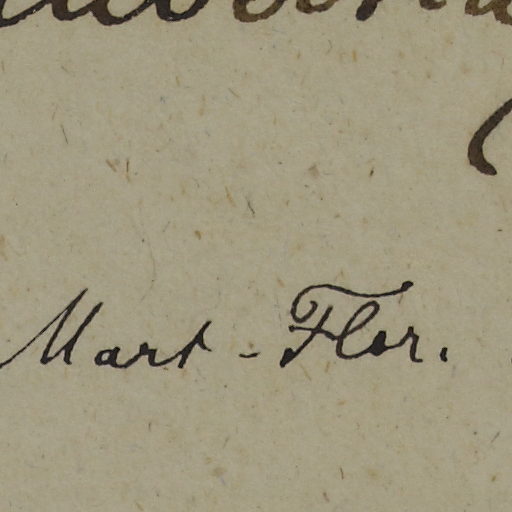 Mart - Flor.